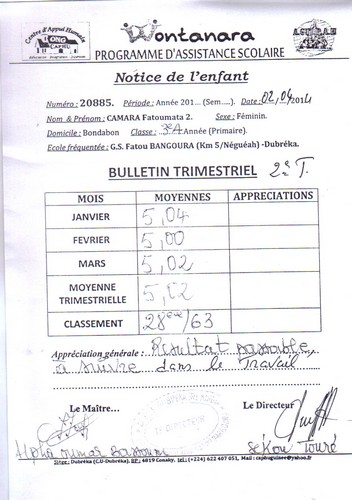 Centre d'Appui Humain
ONG
CAPHU
Wontanara
PROGRAMME D'ASSISTANCE SCOLAIRE
Notice de l'enfant
Numéro : 20885. Période : Année 201... (Sem.....). Date : 02/04/2014
Nom & Prénom : CAMARA Fatoumata 2. Sexe : Féminin.
Domicile : Bondabon Classe : 3è A Année (Primaire).
Ecole fréquentée : G.S. Fatou BANGOURA (Km 5/Néguéah) -Dubréka.
BULLETIN TRIMESTRIEL 2è T.
MOIS MOYENNES APPRECIATIONS
JANVIER 5,04
FEVRIER 5,00
MARS 5,02
MOYENNE TRIMESTRIELLE 5,02
CLASSEMENT 28ème/63
Appréciation générale : Résultat passable,
à suivre dans le travail
Le Maître... Le Directeur
LE DIRECTEUR
Alpha Oumar Bassoum Sekou Touré
Siège : Dubréka (C.U-Dubréka), BP : 4019 Conakry, Tel : (+224) 622 407 051, Mail : caphuguinee@yahoo.fr